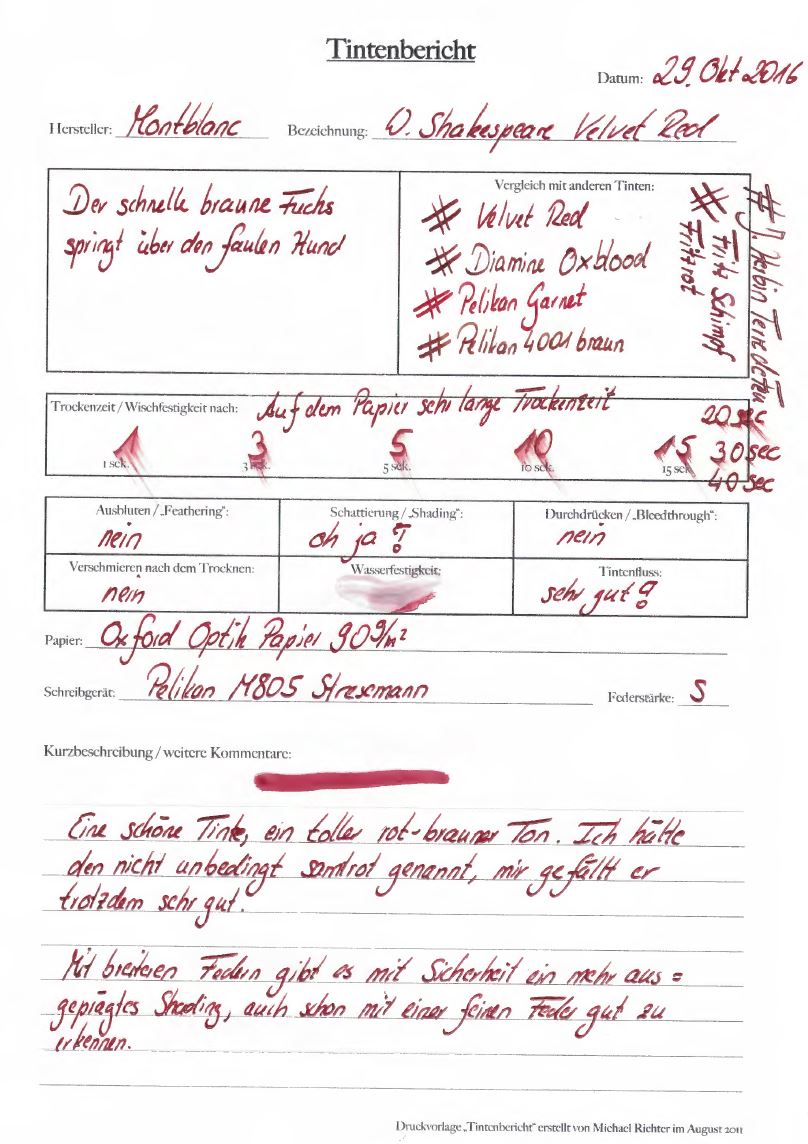 Tintenbericht
Datum: 29. Okt 2016
Hersteller: Montblanc Bezeichnung: W. Shakespeare Velvet Red
Der schnelle braune Fuchs
springt über den faulen Hund
Vergleich mit anderen Tinten:
# Velvet Red
# Diamine Oxblood
# Pelikan Garnet
# Pelikan 4001 braun
# Fritz Schimpf
Fritzrot
# J. Herbin Terre de Feu
Trockenzeit / Wischfestigkeit nach: Auf dem Papier sehr lange Trockenzeit
1 3 5 10 15
1 sek. 3 sek. 5 sek. 10 sek. 15 sek.
20 sec
30 sec
40 sec
Ausbluten / „Feathering“: Schattierung / „Shading“: Durchdrücken / „Bleedthrough“:
nein oh ja! nein
Verschmieren nach dem Trocknen: Wasserfestigkeit: Tintenfluss:
nein sehr gut!
Papier: Oxford Optik Papier 90 g/m²
Schreibgerät: Pelikan M805 Stresemann Federstärke: S
Kurzbeschreibung / weitere Kommentare:
Eine schöne Tinte, ein toller rot-brauner Ton. Ich hätte
den nicht unbedingt samtrot genannt, mir gefällt er
trotzdem sehr gut.
Mit breiteren Federn gibt es mit Sicherheit ein mehr aus=
geprägtes Shading, auch schon mit einer feinen Feder gut zu
erkennen.
Druckvorlage „Tintenbericht“ erstellt von Michael Richter im August 2011